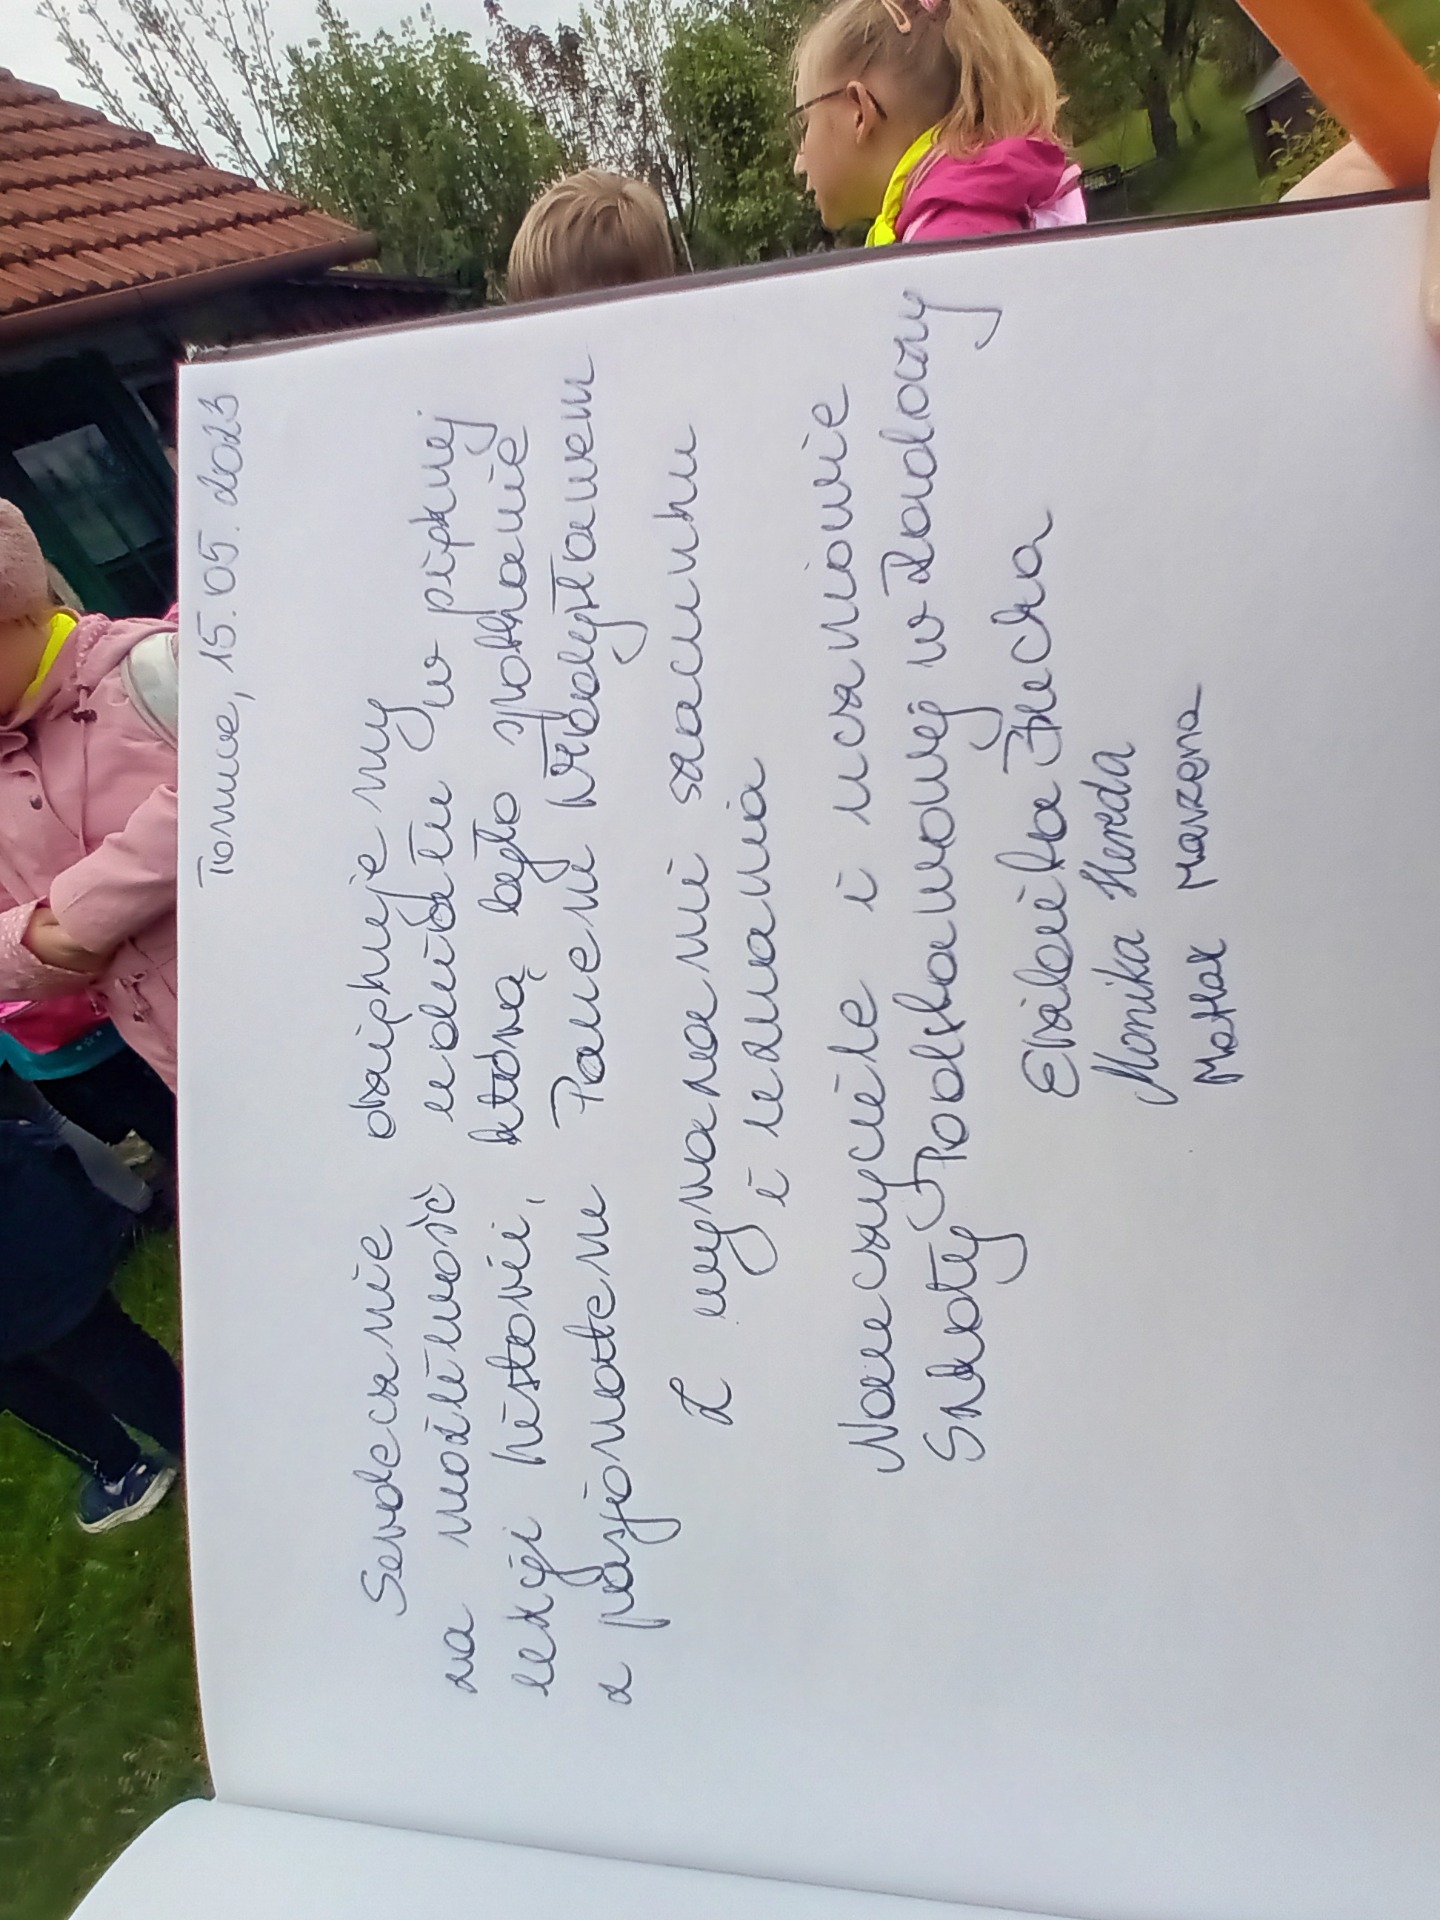 Tomice, 15.05.2023
Serdecznie dziękujemy
za możliwość udziału w pięknej
lekcji historii, którą było spotkanie
z pasjonatem Panem Władysławem
Z wyrazami szacunku
i uznania
Nauczyciele i uczniowie
Szkoły Podstawowej w Radoczy
Elżbieta
Monika
Marzena